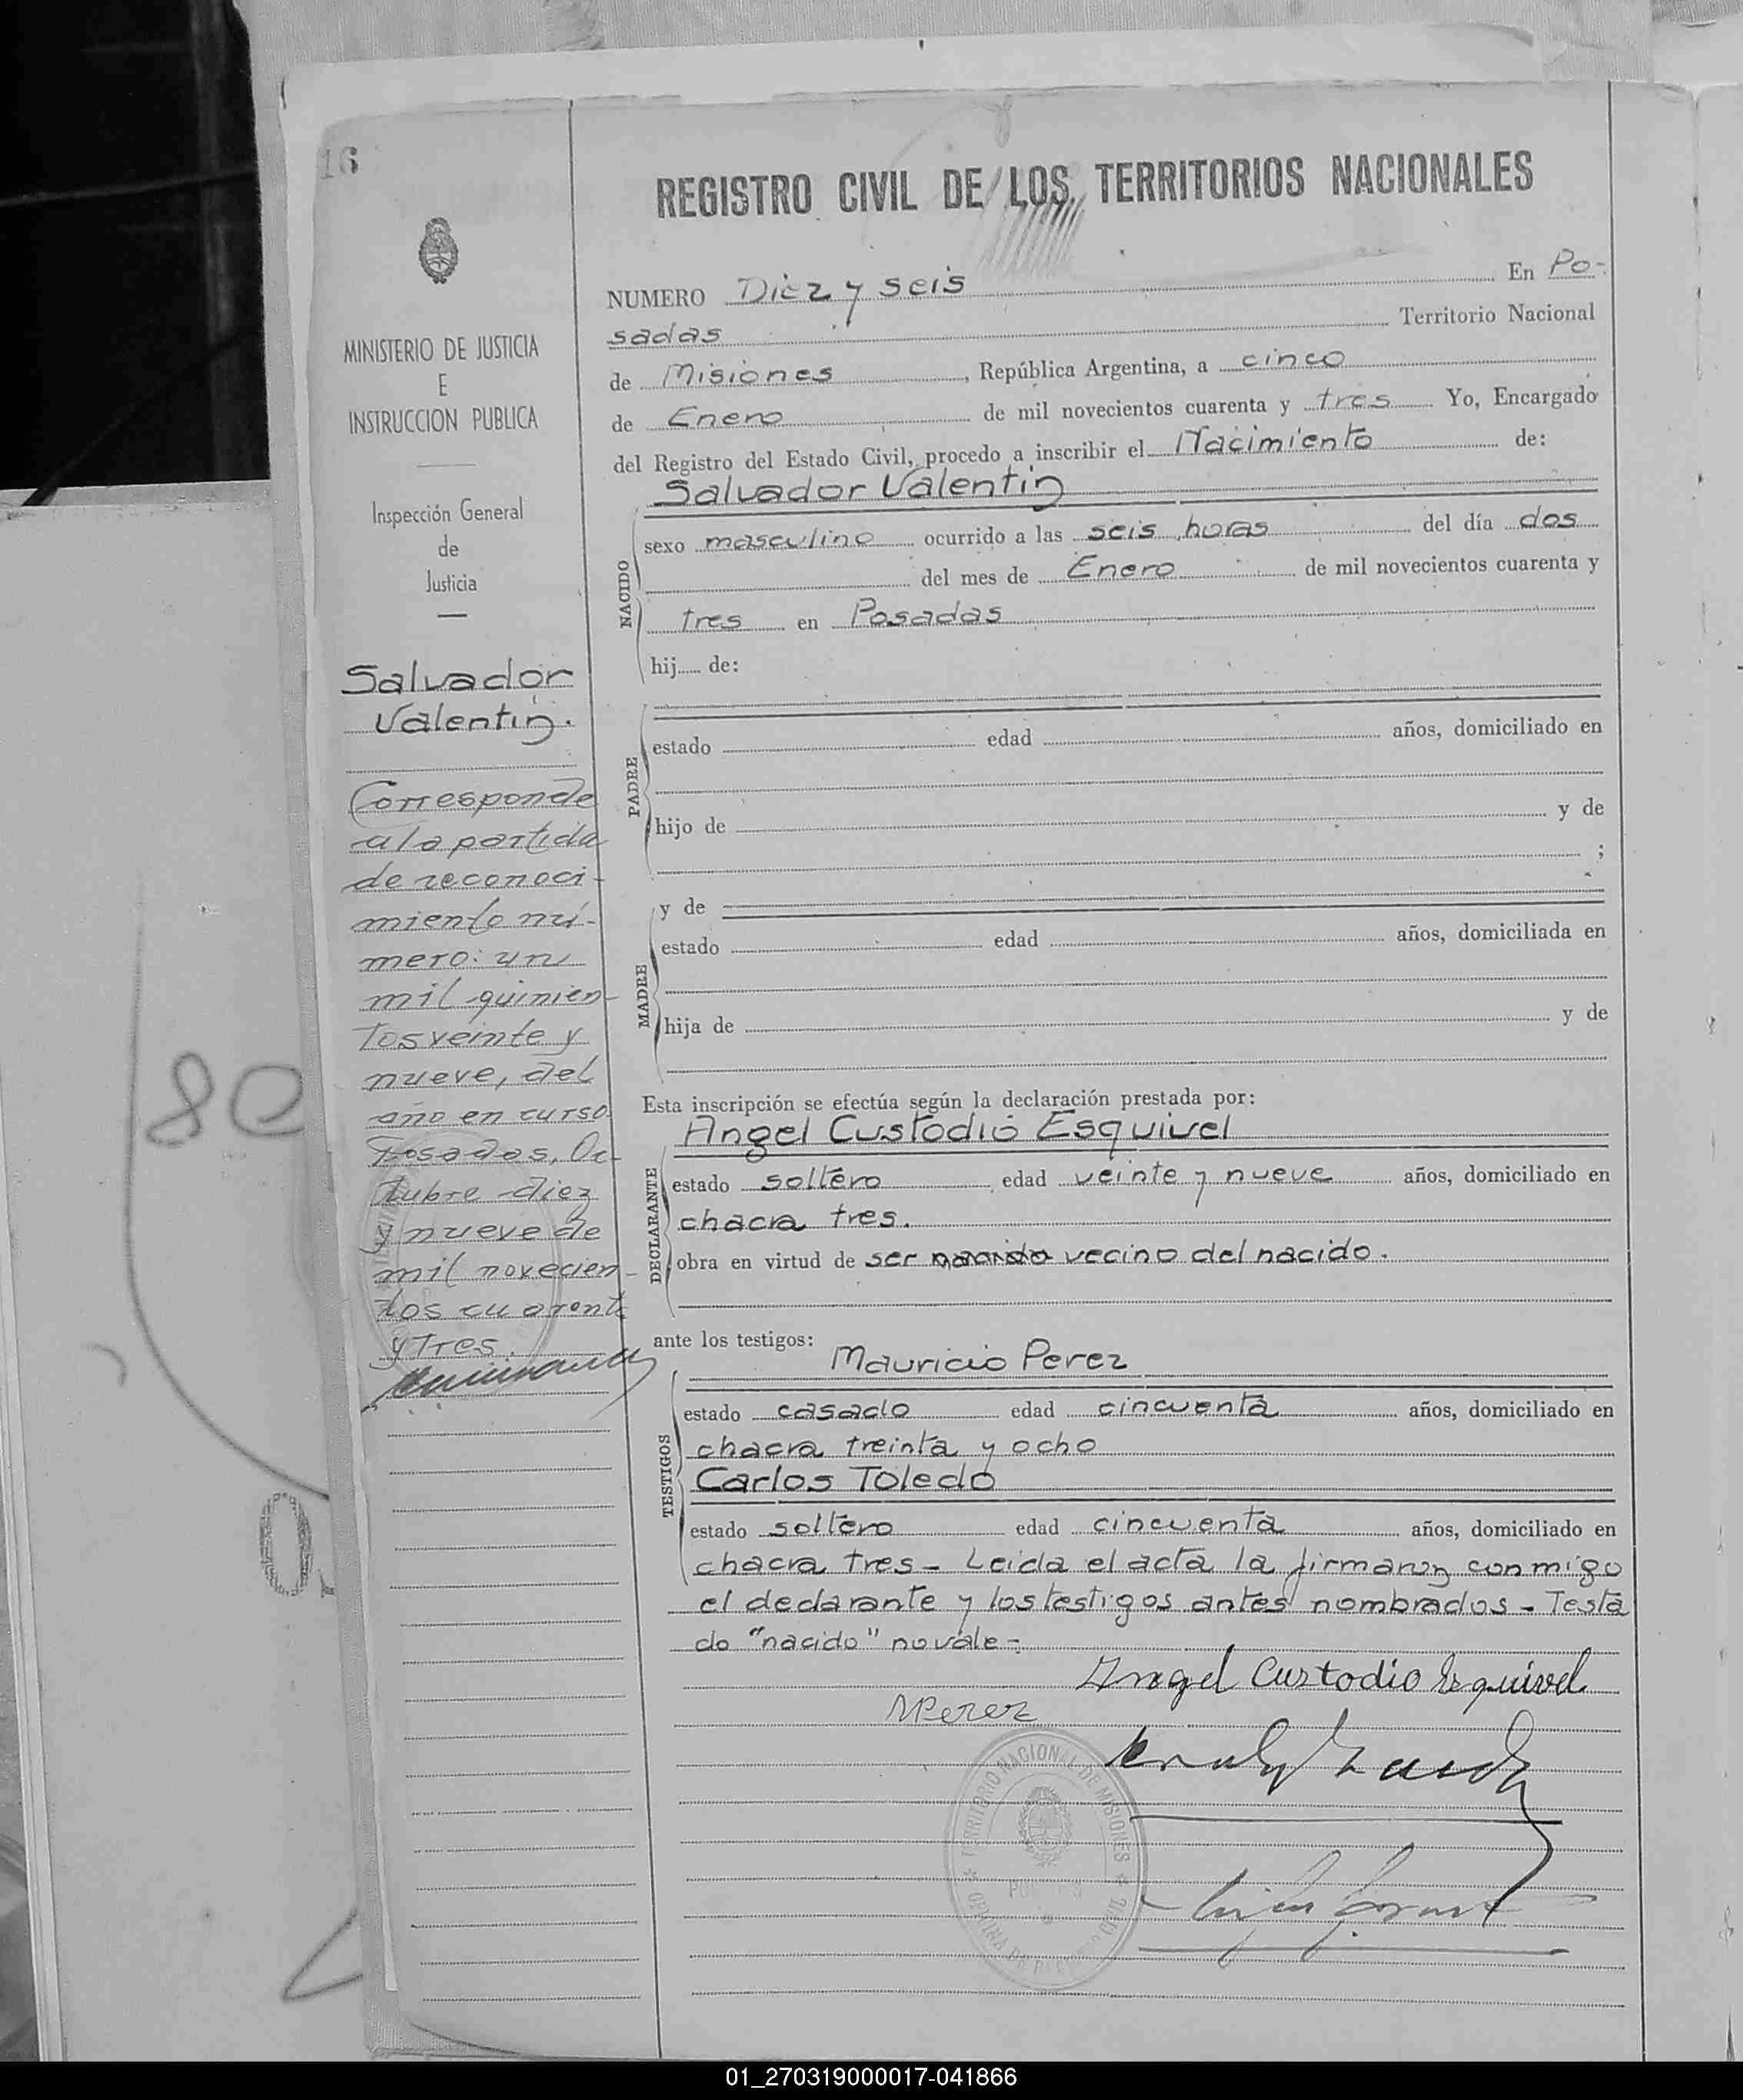 16
MINISTERIO DE JUSTICIA
E
INSTRUCCION PUBLICA
Inspección General
de
Justicia
Salvador
Valentin.
Corresponde
a la partida
de reconoci-
miento nú-
mero: un
mil quinien-
tos veinte y
nueve, del
año en curso
Posadas, Oc-
tubre diez
y nueve de
mil novecien-
tos cuarenta
y tres.
REGISTRO CIVIL DE LOS TERRITORIOS NACIONALES
NUMERO Diez y seis En Po-
sadas Territorio Nacional
de Misiones, República Argentina, a cinco
de Enero de mil novecientos cuarenta y tres Yo, Encargado
del Registro del Estado Civil, procedo a inscribir el Nacimiento de:
Salvador Valentin
NACIDO
sexo masculino ocurrido a las seis horas del día dos
del mes de Enero de mil novecientos cuarenta y
tres en Posadas
hij de:
PADRE
estado edad años, domiciliado en
hijo de y de
;
MADRE
y de
estado edad años, domiciliada en
hija de y de
Esta inscripción se efectúa según la declaración prestada por:
Angel Custodio Esquivel
DECLARANTE
estado soltero edad veinte y nueve años, domiciliado en
chacra tres.
obra en virtud de ser nacido vecino del nacido.
ante los testigos:
Mauricio Perez
TESTIGOS
estado casado edad cincuenta años, domiciliado en
chacra treinta y ocho
Carlos Toledo
estado soltero edad cincuenta años, domiciliado en
chacra tres - Leida el acta la firmaron conmigo
el declarante y los testigos antes nombrados - Testa
do "nacido" no vale -
Angel Custodio Esquivel
MPerez
TERRITORIO NACIONAL DE MISIONES
80
01_270319000017-041866